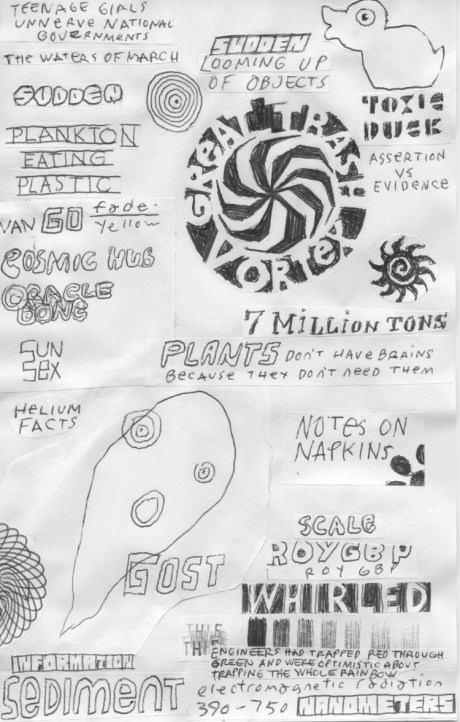 TEENAGE GIRLS
UNNERVE NATIONAL
GOVERNMENTS
THE WATERS OF MARCH
SUDDEN
PLANKTON
EATING
PLASTIC
VAN GO fade.
Yellow
COSMIC HUB
ORACLE
BONE
SUN
SEX
HELIUM
FACTS
SUDDEN
LOOMING UP
OF OBJECTS
TOXIC
DUCK
ASSERTION
VS
EVIDENCE
GREAT TRASH
VORTEX
7 MILLION TONS
PLANTS DON'T HAVE BRAINS
BECAUSE THEY DON'T NEED THEM
NOTES ON
NAPKINS
GOST
SCALE
ROYGBP
ROY GBP
WHIRLED
THIS
THIS
ENGINEERS HAD TRAPPED RED THROUGH
GREEN AND WERE OPTIMISTIC ABOUT
TRAPPING THE WHOLE RAINBOW
INFORMATION
SEDIMENT
electromagnetic radiation
390-750 NANOMETERS